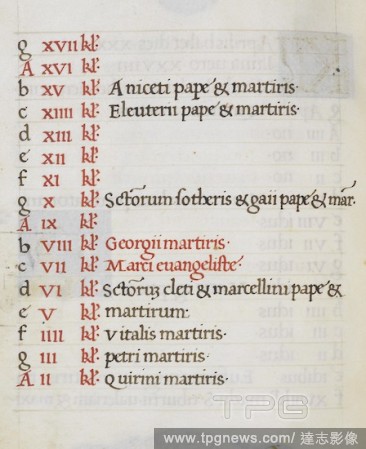 g XVII kl'.
A XVI kl'.
b XV kl'. Aniceti pape & martiris·
c XIIII kl'. Eleuterii pape & martiris·
d XIII kl'.
e XII kl'.
f XI kl'.
g X kl'. Sctōrum sotheris & gaii pape & mar̃.
A IX kl'.
b VIII kl'. Georgii martiris·
c VII kl'. Marci euangeliste·
d VI kl'. Sctōrum cleti & marcellini pape &
e V kl'. martirum·
f IIII kl'. Vitalis martiris·
g III kl'. petri martiris·
A II kl'. Quirini martiris·
TPG
www.tpgnews.com / 達志影像